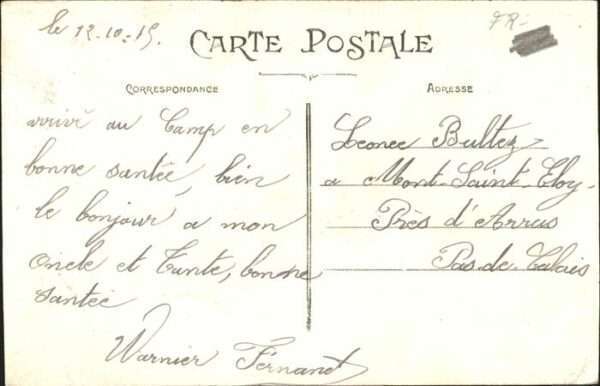 le 12.10-15.
FR-
CARTE POSTALE
CORRESPONDANCE
arrivé au Camp en
bonne santée, bien
le bonjour a mon
Oncle et Tante, bonne
santée
Warnier Fernand
ADRESSE
Léonce Bultez
a Mont-Saint-Eloy-
Près d'Arras
Pas-de-Calais